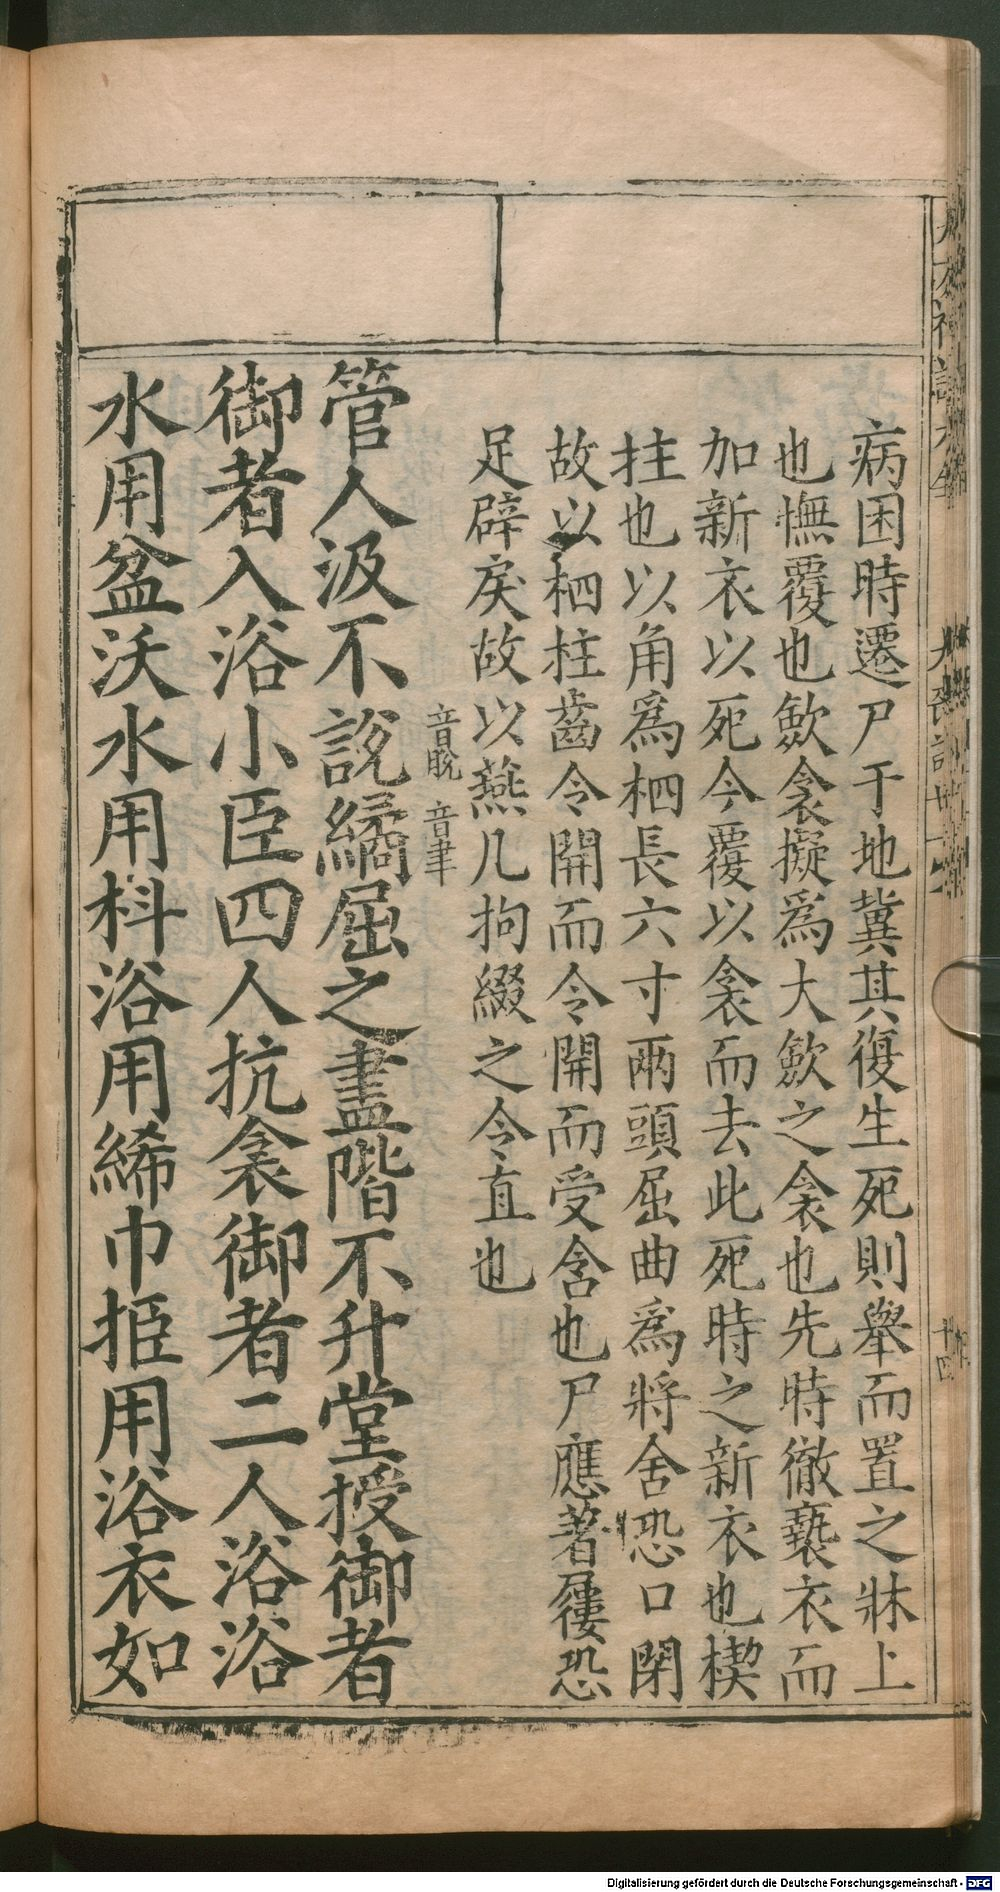 病困時遷尸于地冀其復生死則舉而置之牀上
也幠覆也歛衾擬爲大歛之衾也先時徹褻衣而
加新衣以死今覆以衾而去此死時之新衣也楔
拄也以角爲柶長六寸兩頭屈曲爲將含恐口閉
故以柶柱齒令開而令開而受含也尸應著屨恐
足辟戾故以燕几拘綴之令直也
音脫 音聿
管人汲不說繘屈之盡階不升堂授御者
御者入浴小臣四人抗衾御者二人浴浴
水用盆沃水用枓浴用絺巾挋用浴衣如
Digitalisierung gefördert durch die Deutsche Forschungsgemeinschaft - DFG